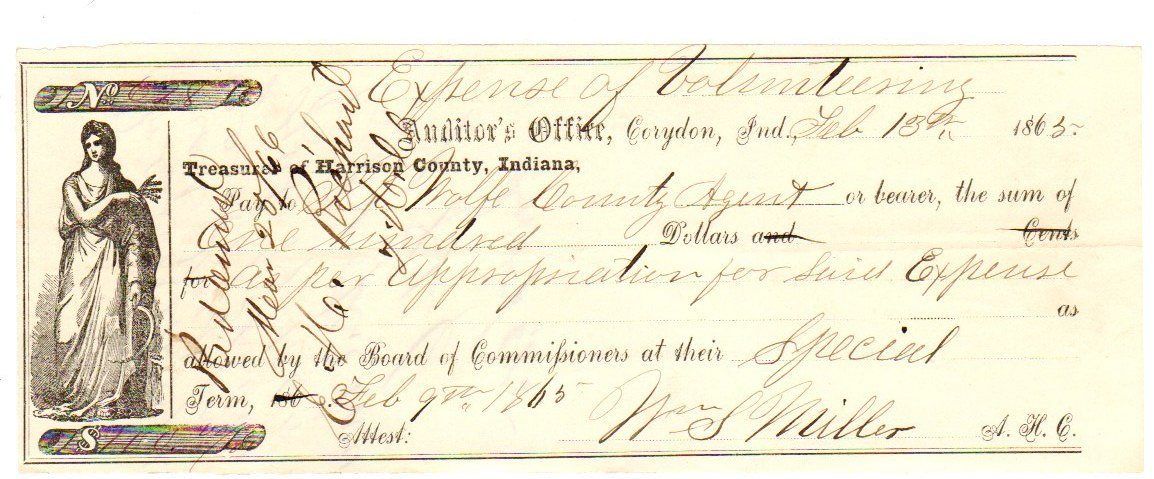 No
Expense of Volunteering
Auditor's Office, Corydon, Ind., Feb 13th 1865
Treasurer of Harrison County, Indiana,
Pay to Wolfe County Agent or bearer, the sum of
One hundred Dollars and Cents
for as per appropriation for said Expense
as
allowed by the Board of Commissioners at their Special
Term, 186 . Feb 9th 1865
Attest: Wm S Miller A. H. C.
$
Redeemed
20 /66